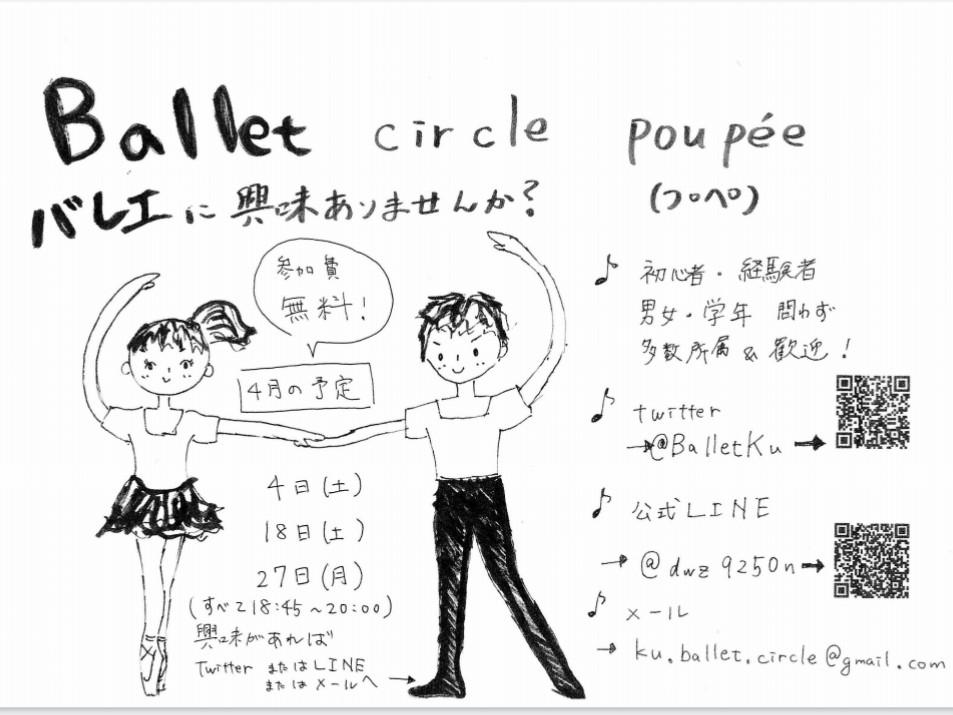 Ballet circle poupée
(プペ)
バレエに興味ありませんか?
参加費
無料!
4月の予定
4日(土)
18日(土)
27日(月)
(すべて18:45~20:00)
興味があれば
Twitter またはLINE
または メールへ →
♪ 初心者・経験者
男女・学年 問わず
多数所属 & 歓迎!
♪ twitter
→@BalletKu →
♪ 公式LINE
→ @dwz9250n →
♪ メール
→ ku.ballet.circle@gmail.com